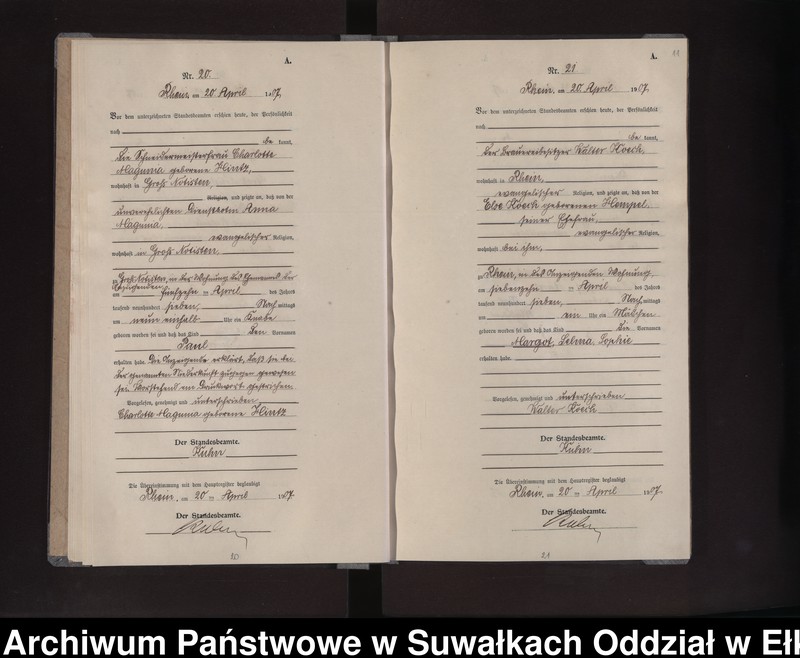 A.
Nr. 20.
Rhein am 20 April 1907
Vor dem unterzeichneten Standesbeamten erschien heute, der Persönlichkeit
nach
be kannt,
die Schneidermeisterfrau Charlotte
Maguma geborene Hintz,
wohnhaft in Groß Notisten,
Religion, und zeigte an, daß von der
unverehelichten Anna
Maguma,
evangelischer Religion,
wohnhaft in Groß Notisten
zu Groß Notisten, in der Wohnung des
am fünfzehn ten April des Jahres
tausend neunhundert sieben, Nach mittags
um neun einhalb Uhr ein Knabe
geboren worden sei und daß das Kind den Vornamen
Paul
erhalten habe. Die Anzeigende erklärt, daß sie bei
der genannten Niederkunft zugegen gewesen
sei. Vorstehend ein Druckwort gestrichen.
Vorgelesen, genehmigt und unterschrieben
Charlotte Maguma geborene Hintz
Der Standesbeamte.
Kuhn
Die Übereinstimmung mit dem Hauptregister beglaubigt
Rhein, am 20 ten April 1907.
Der Standesbeamte.
Kuhn
20
11
A.
Nr. 21
Rhein am 20 April 1907.
Vor dem unterzeichneten Standesbeamten erschien heute, der Persönlichkeit
nach
be kannt,
der Brauereibesitzer Walter Koeck,
wohnhaft in Rhein,
evangelischer Religion, und zeigte an, daß von der
Else Koeck geborenen Hempel
seiner Ehefrau,
evangelischer Religion,
wohnhaft bei ihm,
zu Rhein, in des Anzeigenden Wohnung
am siebenzehn ten April des Jahres
tausend neunhundert sieben, Nach mittags
um ein Uhr ein Mädchen
geboren worden sei und daß das Kind die Vornamen
Margot, Selma, Sophie
erhalten habe.
Vorgelesen, genehmigt und unterschrieben
Walter Koeck
Der Standesbeamte.
Kuhn
Die Übereinstimmung mit dem Hauptregister beglaubigt
Rhein, am 20 ten April 1907.
Der Standesbeamte.
Kuhn
21
Archiwum Państwowe w Suwałkach Oddział w Ełk